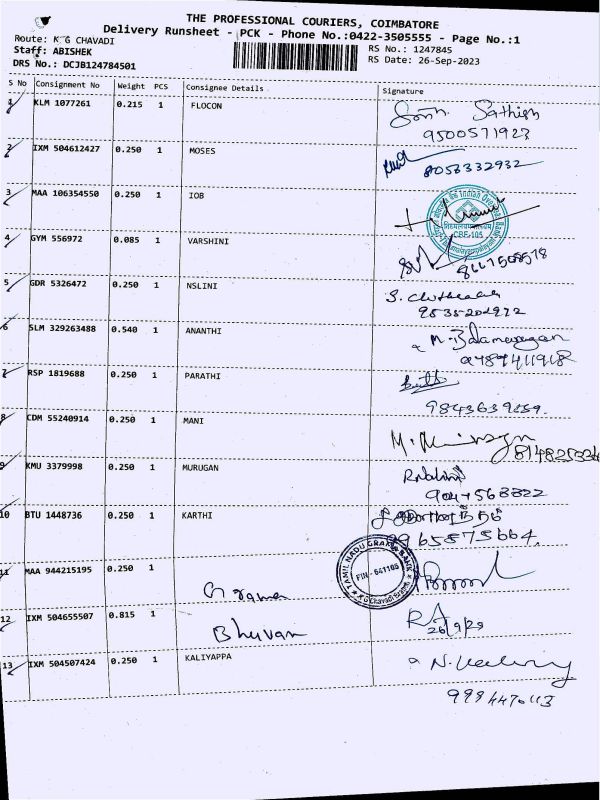 THE PROFESSIONAL COURIERS, COIMBATORE
Delivery Runsheet - PCK - Phone No.:0422-3505555 - Page No.:1
Route: K G CHAVADI
Staff: ABISHEK
DRS No.: DCJB124784501
RS No.: 1247845
RS Date: 26-Sep-2023
S No Consignment No Weight PCS Consignee Details Signature
1 KLM 1077261 0.215 1 FLOCON Sathish
9500571923
2 IXM 504612427 0.250 1 MOSES 8053332932
3 MAA 106354550 0.250 1 IOB
CBE-105
4 GYM 556972 0.085 1 VARSHINI
5 GDR 5326472 0.250 1 NSLINI S.
6 SLM 329263488 0.540 1 ANANTHI M. Balamurugan
7 RSP 1819688 0.250 1 PARATHI
8 CDM 55240914 0.250 1 MANI M.
9 KMU 3379998 0.250 1 MURUGAN
10 BTU 1448736 0.250 1 KARTHI
9965575664.
11 MAA 944215195 0.250 1 G rama
TAMIL NADU GRAMA BANK
PIN - 641105
K G Chavadi Branch
12 IXM 504655507 0.815 1 Bhuvan
26/9/29
13 IXM 504507424 0.250 1 KALIYAPPA N.